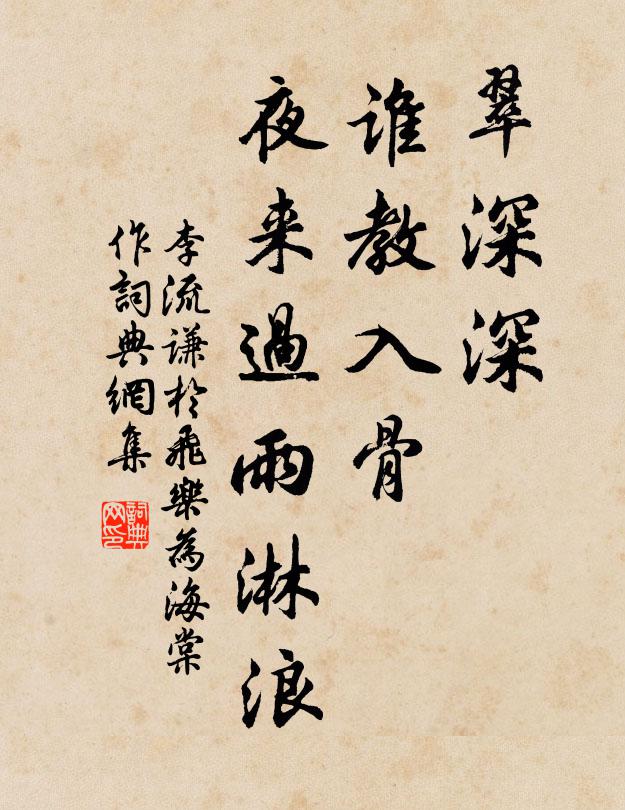 翠深深
谁教入骨
夜来過雨淋浪
李流谦於飛樂為海棠
作詞典網集
詞典
网印